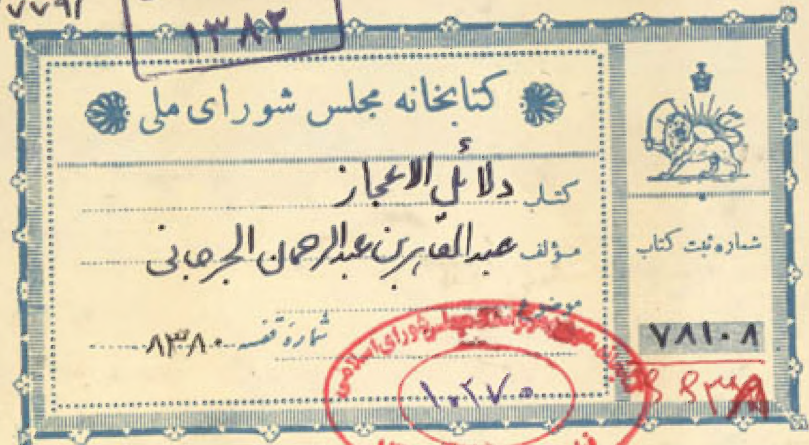 ۷۷۹۲
۱۳۸۲
کتابخانه مجلس شورای ملی
کتاب دلائل الاعجاز
مؤلف عبدالقاهر بن عبدالرحمان الجرجانی
موضوع
شماره قفسه ۸۳۸۰
شماره ثبت کتاب
۷۸۱۰۸
مجلس شورای اسلامی
۱۰۲۷۰